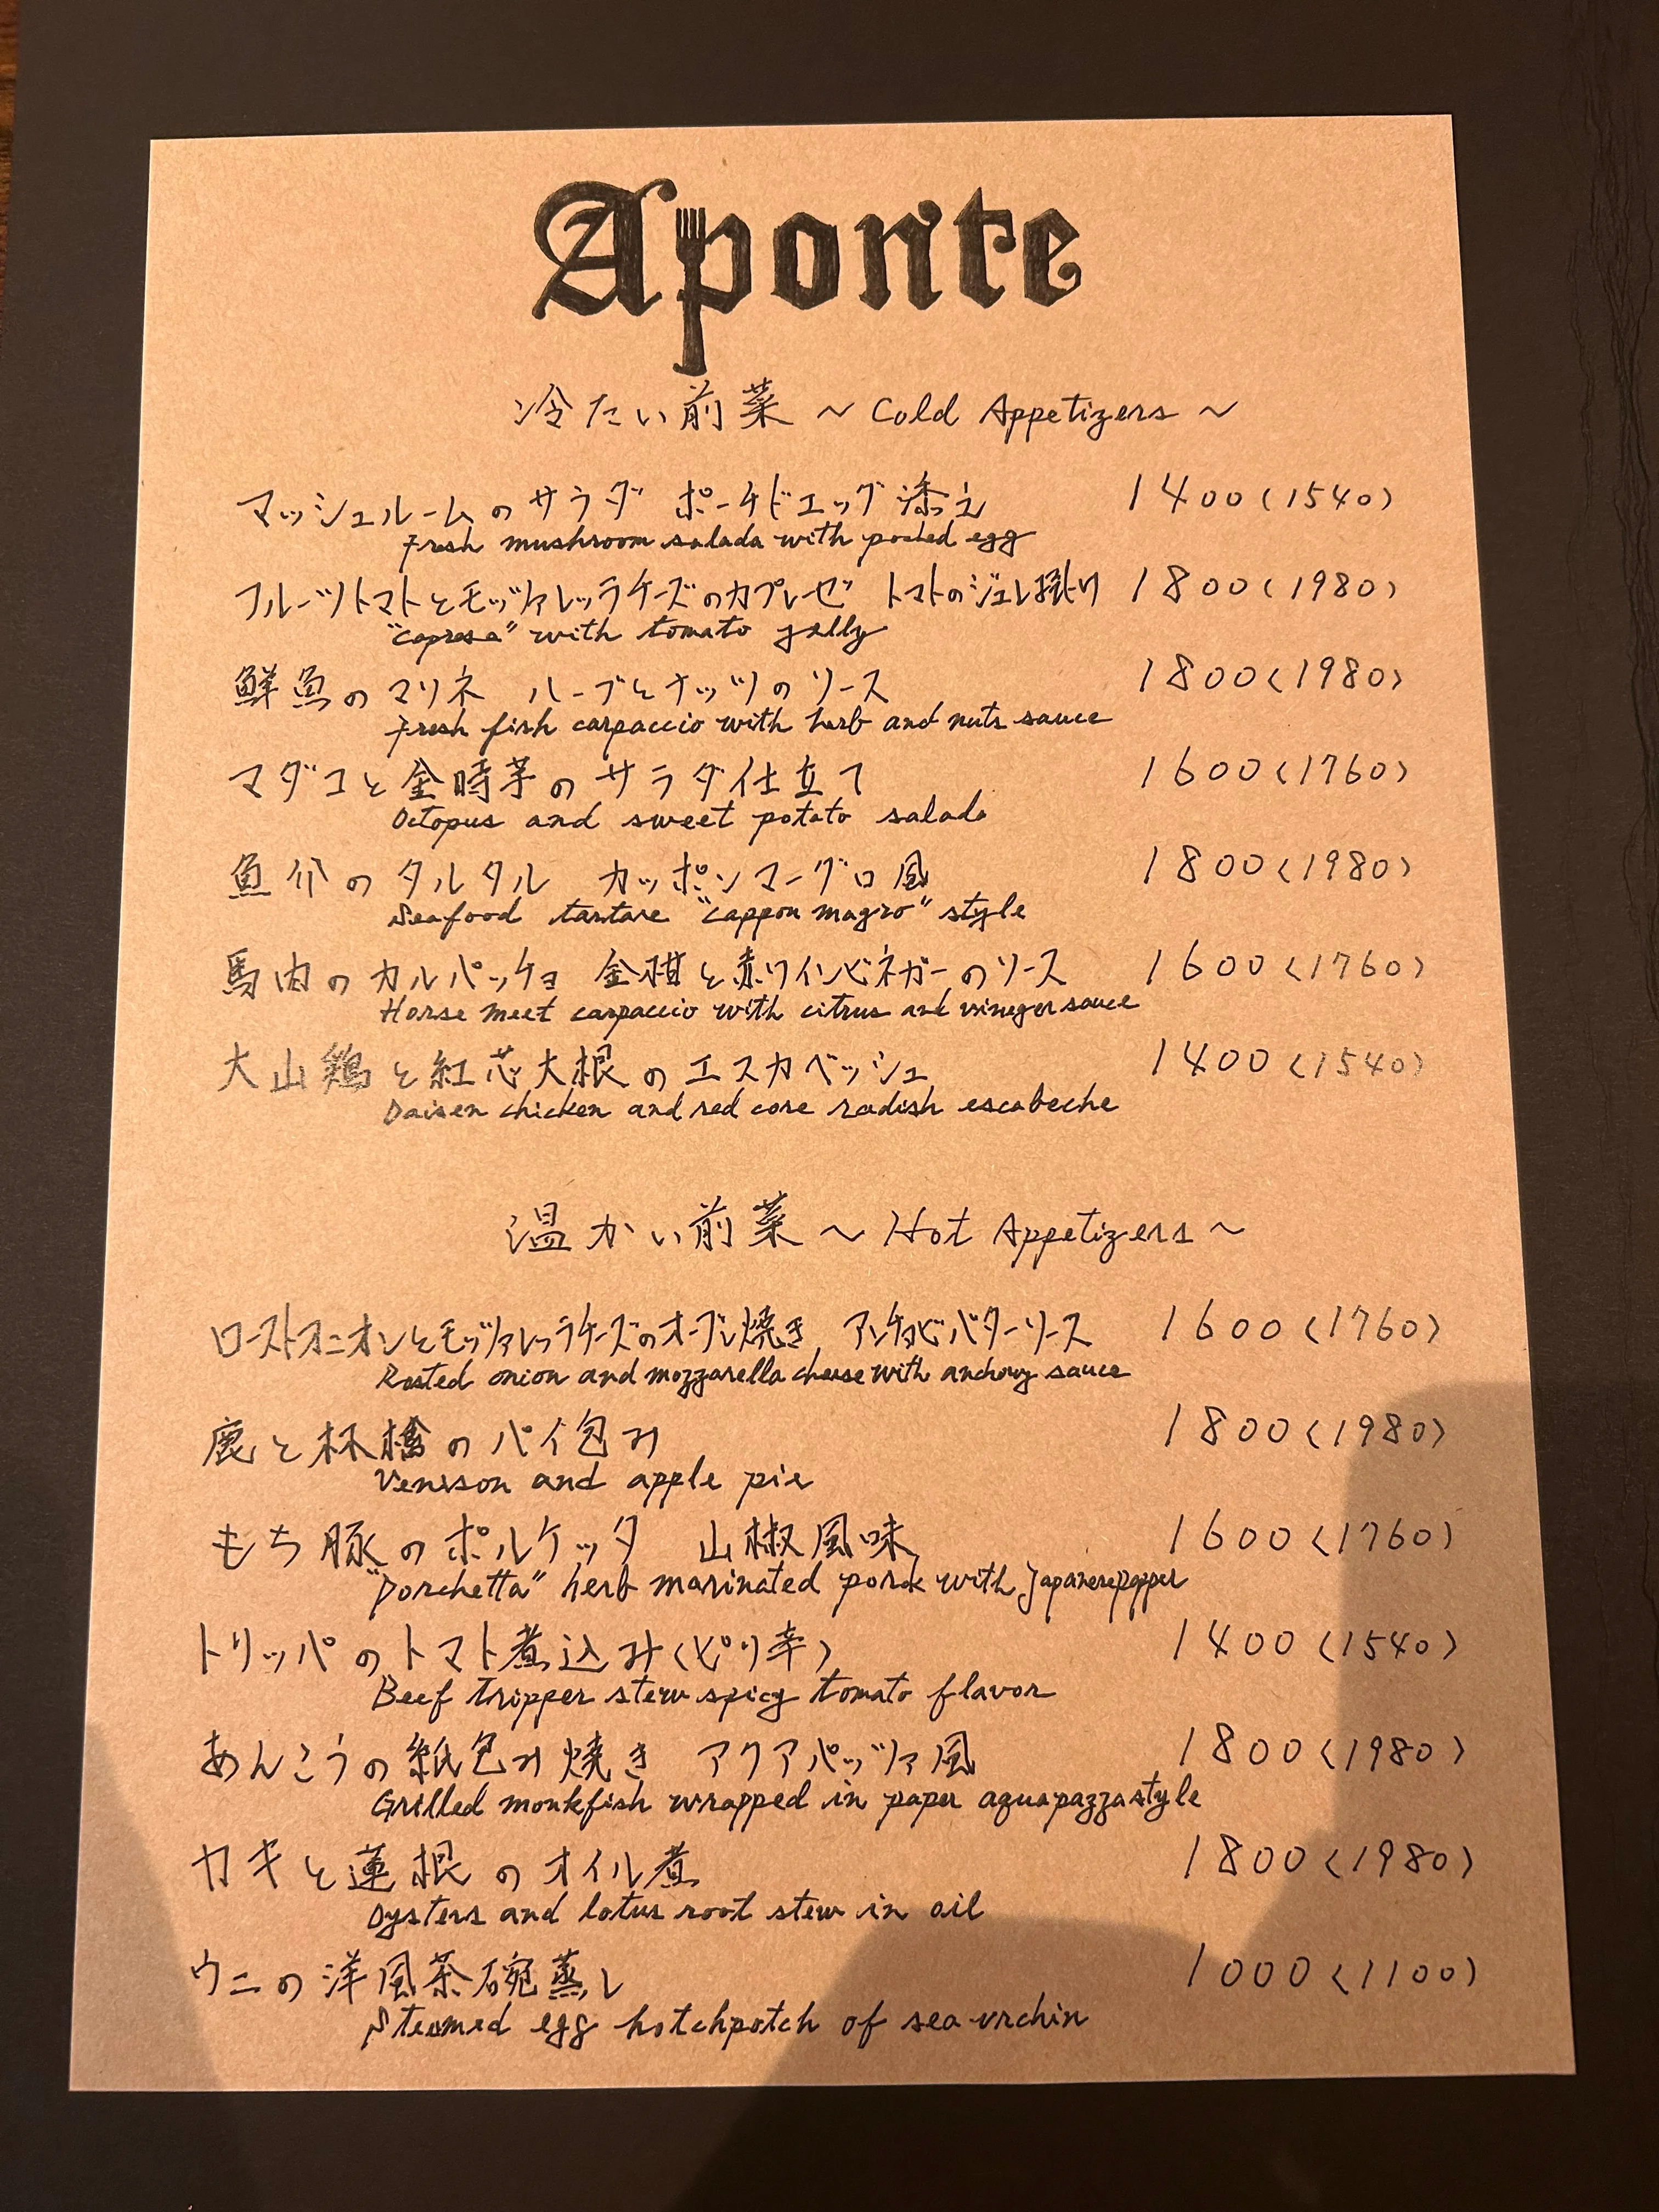 Aponte
冷たい前菜 ~ Cold Appetizers ~
マッシュルームのサラダ ポーチドエッグ添え 1400(1540)
Fresh mushroom salada with poched egg
フルーツトマトとモッヅァレッラチーズのカプレーゼ トマトのジュレ掛け 1800(1980)
"caprese" with tomato jelly
鮮魚のマリネ ハーブとナッツのソース 1800(1980)
Fresh fish carpaccio with herb and nuts sauce
マダコと金時芋のサラダ仕立て 1600(1760)
Octopus and sweet potato salada
魚介のタルタル カッポンマーグロ風 1800(1980)
Seafood tartare "cappon magro" style
馬肉のカルパッチョ 金柑と赤ワインビネガーのソース 1600(1760)
Horse meet carpaccio with citrus and vineger sauce
大山鶏と紅芯大根のエスカベッシュ 1400(1540)
Daisen chicken and red core radish escabeche
温かい前菜 ~ Hot Appetizers ~
ローストオニオンとモッヅァレッラチーズのオーブン焼き アンチョビバターソース 1600(1760)
Rosted onion and mozzarella cheese with anchovy sauce
鹿と林檎のパイ包み 1800(1980)
Venison and apple pie
もち豚のポルケッタ 山椒風味 1600(1760)
"Porchetta" herb marinated pork with Japanese pepper
トリッパのトマト煮込み(ピリ辛) 1400(1540)
Beef tripper stew spicy tomato flavor
あんこうの紙包み焼き アクアパッヅァ風 1800(1980)
Grilled monkfish wrapped in paper aquapazza style
カキと蓮根のオイル煮 1800(1980)
Oysters and lotus root stew in oil
ウニの洋風茶碗蒸し 1000(1100)
Steamed egg hotchpotch of sea urchin